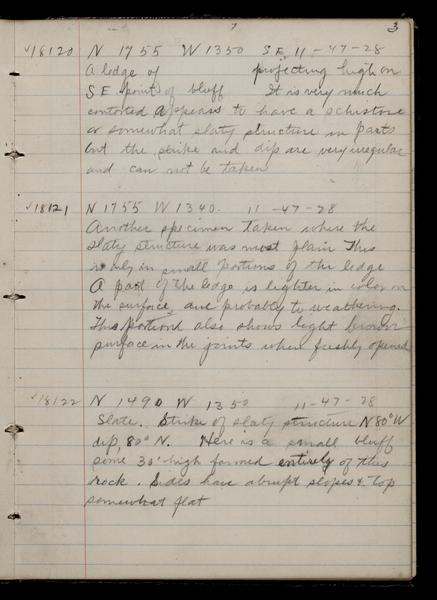 3
✓18120 N 1755 W 1350 S E 11-47-28
A ledge of projecting high on
S E point of bluff It is very much
contorted Appears to have a schistose
or somewhat slaty structure in parts
but the strike and dip are very irregular
and can not be taken
✓18121 N 1755 W 1340. 11-47-28
Another specimen taken where the
slaty structure was most plain This
is only in small portions of the ledge
A part of the ledge is lighter in color on
the surface, due probably to weathering.
This portion also shows light brown
surface in the joints when freshly opened
✓18122 N 1490 W 1350 11-47-28
Slate. Strike of slaty structure N 80° W
dip, 80° N. Here is a small bluff
some 30' high formed entirely of this
rock. Sides have abrupt slopes & top
somewhat flat